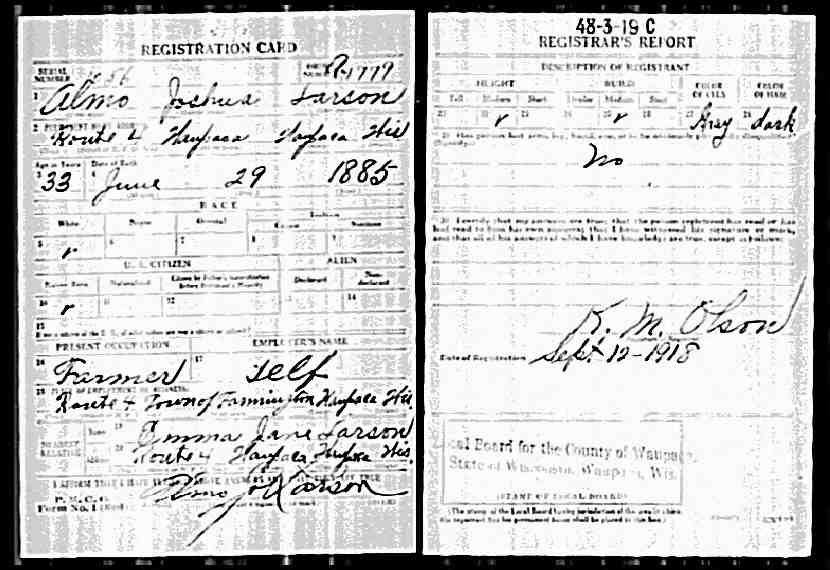 REGISTRATION CARD
SERIAL NUMBER
ORDER NUMBER A-1779
1 Almo Joshua Larson
2 PERMANENT HOME ADDRESS
Route 4 Waupaca Waupaca Wis
Age in Years Date of Birth
3 33 4 June 29 1885
RACE
White Negro Oriental Indian
Citizen Noncitizen
5 6 7 8 9
U. S. CITIZEN ALIEN
Native Born Naturalized Citizen by Father's Naturalization Before Registrant's Majority Declarant Non-declarant
10 11 12 14
15
PRESENT OCCUPATION EMPLOYER'S NAME
16 Farmer 17 self
18 PLACE OF EMPLOYMENT OR BUSINESS
Route 4 Town of Farmington Waupaca Wis.
NEAREST RELATIVE
Name 19 Emma Jane Larson
Address 20 Route 4 Waupaca Waupaca Wis.
I AFFIRM THAT I HAVE
P. M. G. O.
Form No. 1 (Red)
Almo J Larson
48-3-19 C
REGISTRAR'S REPORT
DESCRIPTION OF REGISTRANT
HEIGHT BUILD COLOR OF EYES COLOR OF HAIR
Tall Medium Short Slender Medium Stout
21 22 23 24 25 26 27 Gray 28 dark
29 Has person lost arm, leg, hand, eye,
No
30 I certify that my answers are true; that the person registered has read or has
had read to him his own answers; that I have witnessed his signature or mark,
and that all of his answers of which I have knowledge are true, except as follows:
K. M. Olson
Date of Registration Sept 12-1918
Local Board for the County of Waupaca,
State of Wisconsin, Waupaca, Wis.
(STAMP OF LOCAL BOARD)
(The stamp of the Local Board having jurisdiction of the area in which
the registrant has his permanent home shall be placed in this box.)